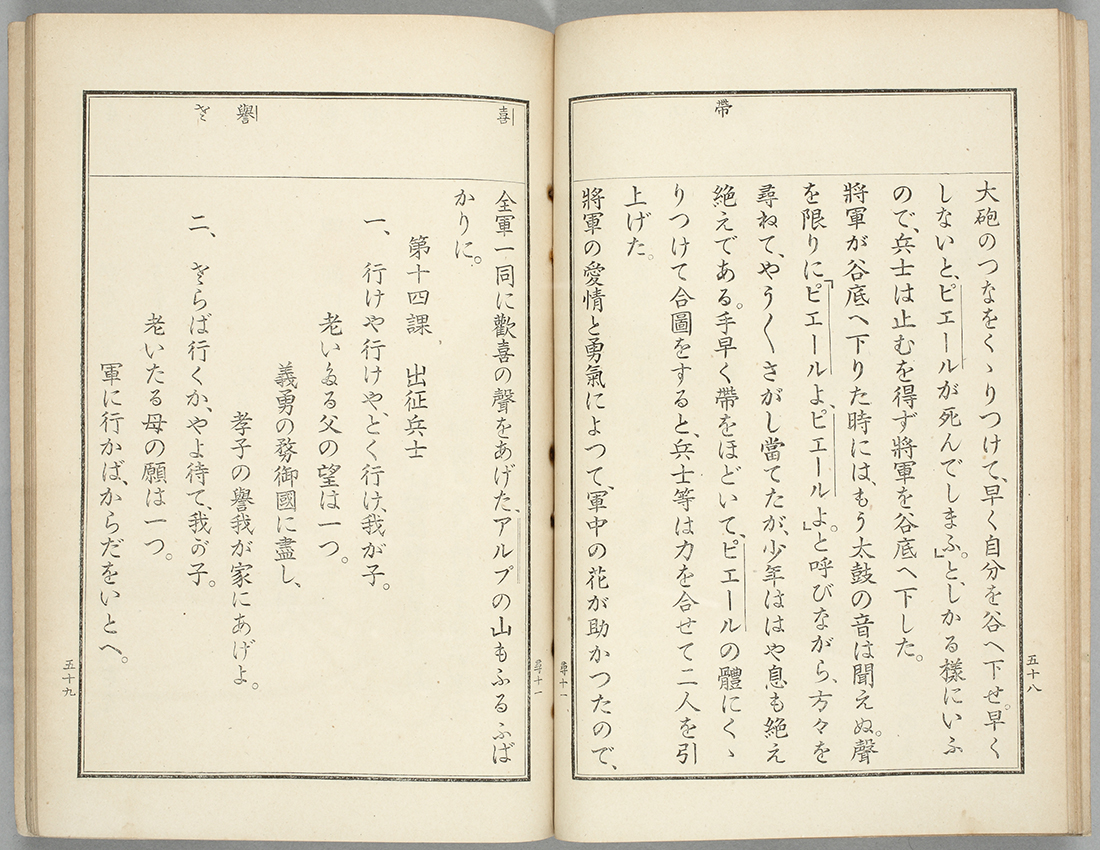 帶
大砲のつなをくゝりつけて、早く自分を谷へ下せ。早く
しないと、ピエールが死んでしまふ。」と、しかる樣にいふ
ので、兵士は止むを得ず將軍を谷底へ下した。
將軍が谷底へ下りた時には、もう太鼓の音は聞えぬ。聲
を限りに「ピエールよ、ピエールよ。」と呼びながら、方々を
尋ねて、やう〱さがし當てたが、少年ははや息も絶え
絶えである。手早く帶をほどいて、ピエールの體にくゝ
りつけて合圖をすると、兵士等は力を合せて二人を引
上げた。
將軍の愛情と勇氣によつて、軍中の花が助かつたので、
五十八
尋十一
喜
譽
さ
全軍一同に歡喜の聲をあげた、アルプの山もふるふば
かりに。
第十四課 出征兵士
一、 行けや行けや、とく行け、我が子。
老いたる父の望は一つ。
義勇の務御國に盡し、
孝子の譽我が家にあげよ。
二、 さらば行くか、やよ待て、我が子。
老いたる母の願は一つ。
軍に行かば、からだをいとへ。
五十九
尋十一